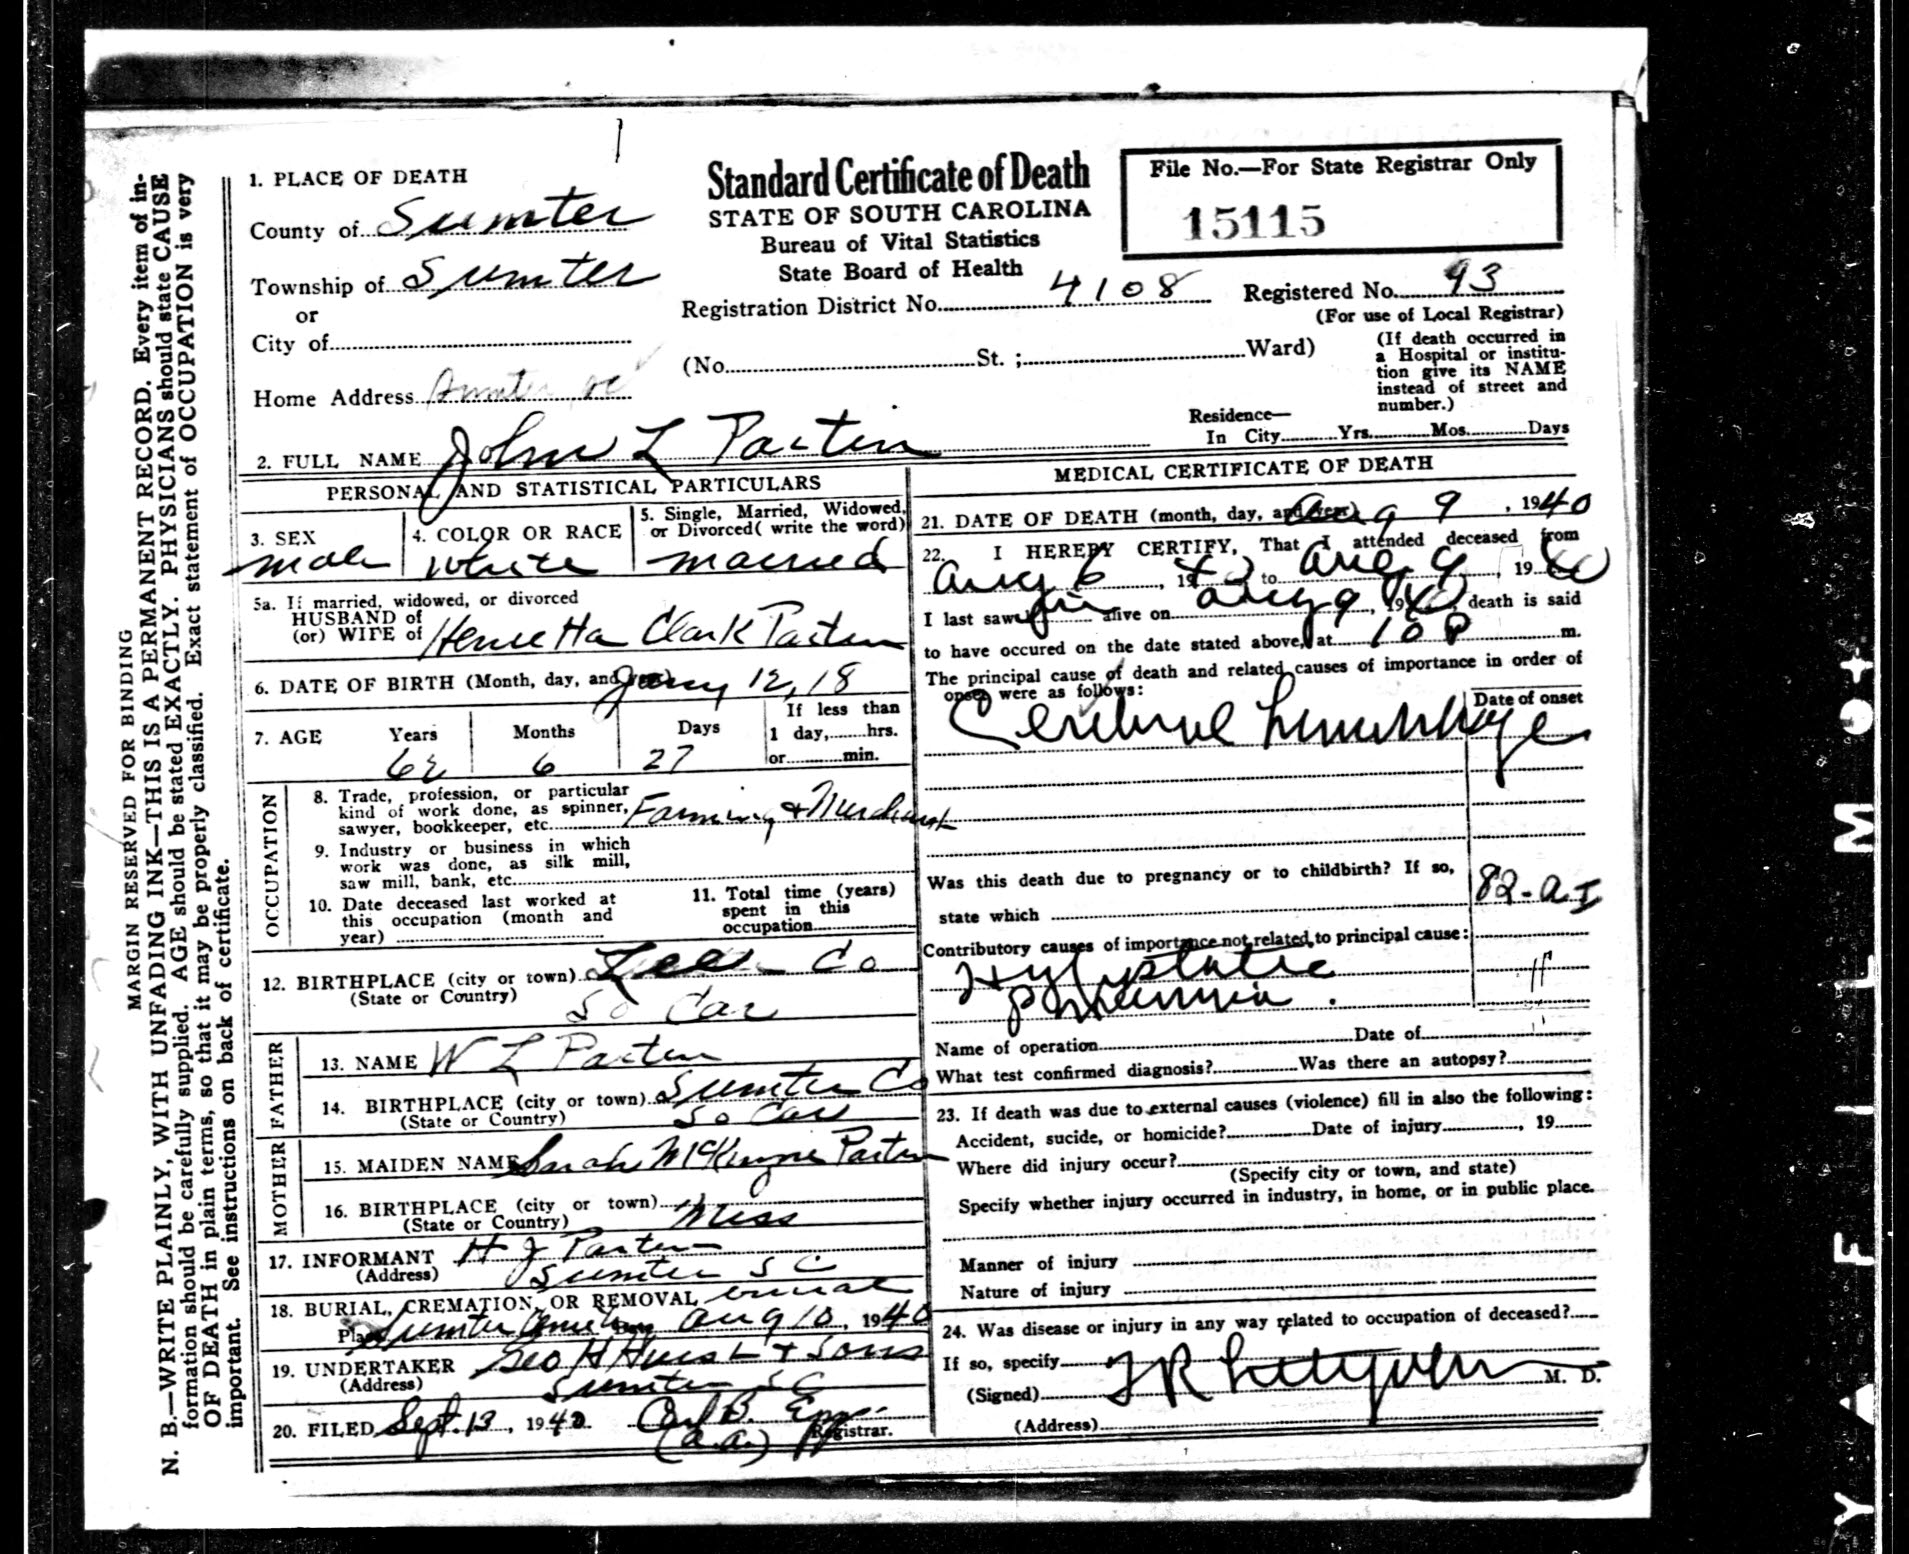 1. PLACE OF DEATH
County of Sumter
Township of Sumter
or
City of
Home Address Sumter, SC
Standard Certificate of Death
STATE OF SOUTH CAROLINA
Bureau of Vital Statistics
State Board of Health
Registration District No. 4108
(No. St. ; Ward)
File No.—For State Registrar Only
15115
Registered No. 93
(For use of Local Registrar)
(If death occurred in
a Hospital or institu-
tion give its NAME
instead of street and
number.)
Residence—
In City Yrs. Mos. Days
2. FULL NAME John L
PERSONAL AND STATISTICAL PARTICULARS
3. SEX male
4. COLOR OR RACE white
5. Single, Married, Widowed,
or Divorced (write the word)
married
5a. If married, widowed, or divorced
HUSBAND of
(or) WIFE of Henrietta Clark
6. DATE OF BIRTH (Month, day, and 12, 18
7. AGE Years Months Days If less than
1 day, hrs.
or min.
62 6 27
OCCUPATION
8. Trade, profession, or particular
kind of work done, as spinner,
sawyer, bookkeeper, etc. Farming + Merchant
9. Industry or business in which
work was done, as silk mill,
saw mill, bank, etc.
10. Date deceased last worked at
this occupation (month and
year)
11. Total time (years)
spent in this
occupation
12. BIRTHPLACE (city or town) Lee Co
(State or Country) So Car
FATHER
13. NAME W L
14. BIRTHPLACE (city or town) Sumter Co
(State or Country) So Car
MOTHER
15. MAIDEN NAME Sarah
16. BIRTHPLACE (city or town) Miss
(State or Country)
17. INFORMANT H J
(Address) Sumter S C
18. BURIAL, CREMATION, OR REMOVAL burial
Place Sumter Aug 10, 1940
19. UNDERTAKER Geo H Hurst + Sons
(Address) Sumter S C
20. FILED Sept. 13, 1940 Carl B. Epps.
(a.a.) Registrar.
MEDICAL CERTIFICATE OF DEATH
21. DATE OF DEATH (month, day, and year) Aug 9, 1940
22. I HEREBY CERTIFY, That I attended deceased from
Aug 6, 1940 to Aug 9, 1940
I last saw him alive on Aug 9, 1940, death is said
to have occured on the date stated above, at 10 P m.
The principal cause of death and related causes of importance in order of
onset were as follows:
Date of onset
Cerebral hemorrhage
Was this death due to pregnancy or to childbirth? If so,
state which
82-a.I
Contributory causes of importance not related to principal cause:
Hypostatic
pneumonia.
Name of operation Date of
What test confirmed diagnosis? Was there an autopsy?
23. If death was due to external causes (violence) fill in also the following:
Accident, sucide, or homicide? Date of injury , 19
Where did injury occur?
(Specify city or town, and state)
Specify whether injury occurred in industry, in home, or in public place.
Manner of injury
Nature of injury
24. Was disease or injury in any way related to occupation of deceased?
If so, specify
(Signed) M. D.
(Address)
MARGIN RESERVED FOR BINDING
N. B.—WRITE PLAINLY, WITH UNFADING INK—THIS IS A PERMANENT RECORD. Every item of in-
formation should be carefully supplied. AGE should be stated EXACTLY. PHYSICIANS should state CAUSE
OF DEATH in plain terms, so that it may be properly classified. Exact statement of OCCUPATION is very
important. See instructions on back of certificate.